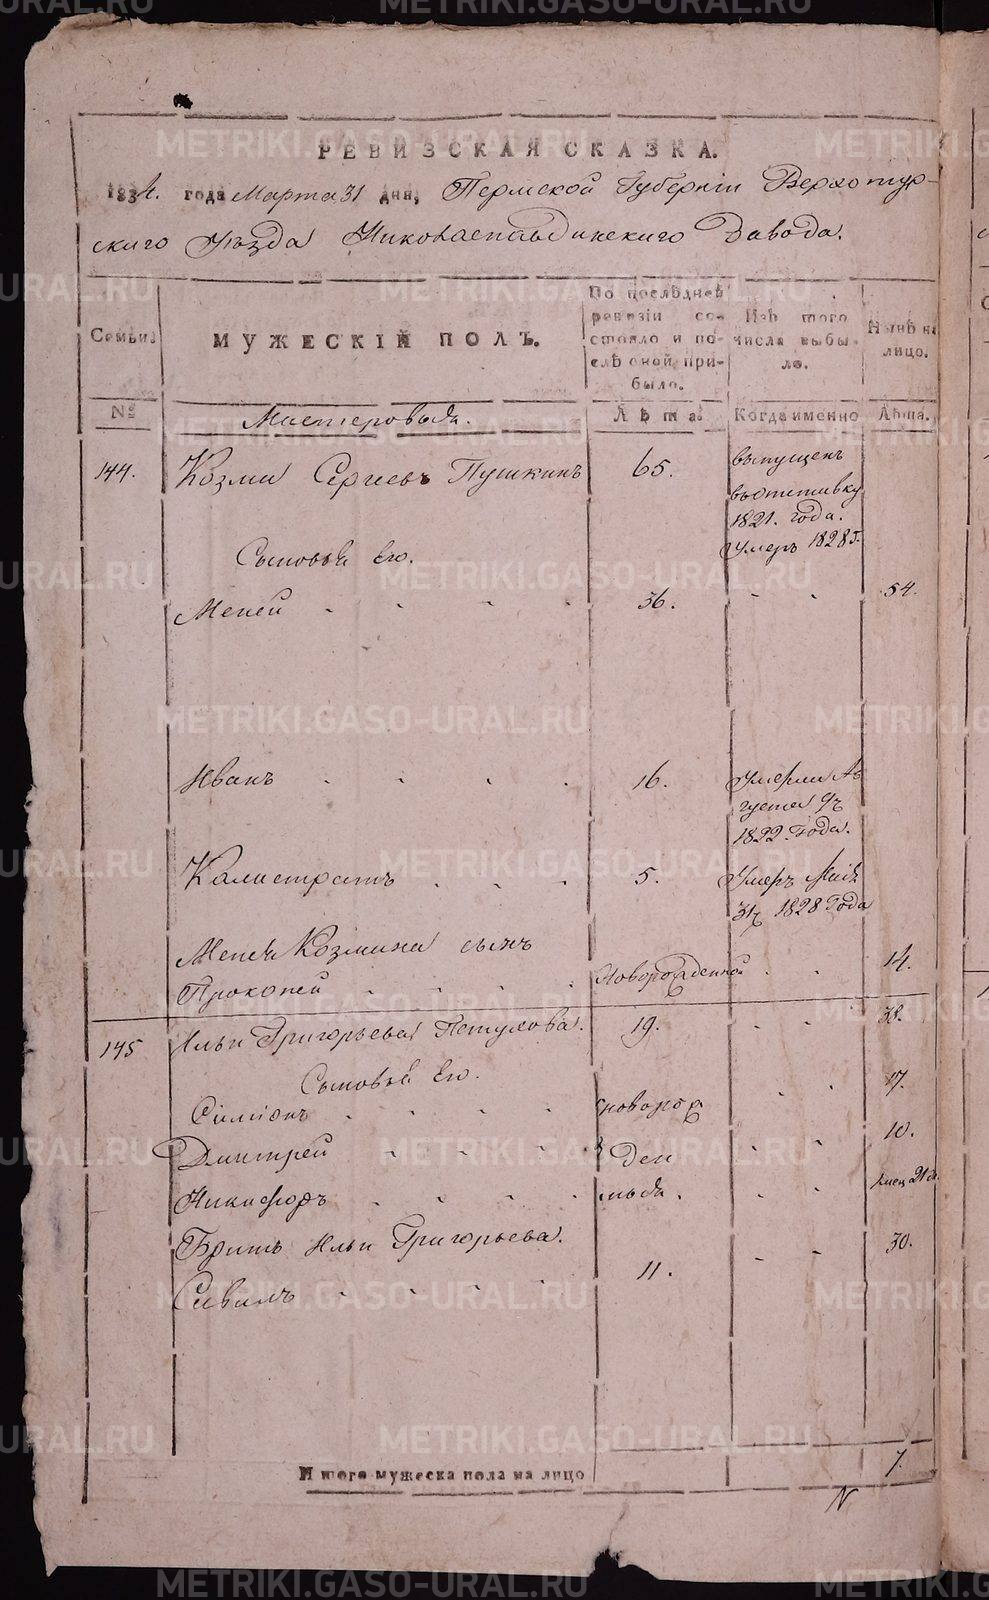 РЕВИЗСКАЯ СКАЗКА.
1834. года Марта 31 дня, Пермской Губернiи Верхотур-
скаго Уѣзда Николаепавдинскаго Завода.
Семьи.
МУЖЕСКІЙ ПОЛЪ.
По послѣдней ревизіи со-
стояло и по-
слѣ оной при-
было.
Изъ того
числа выбы-
ло.
Нынѣ на
лицо.
№
Мастеровыя.
Лѣта.
Когда именно
Лѣта.
144. Козма Сергеевъ Пушкинъ 65. выпущенъ
въ отставку
1821. года.
умеръ 1828 г.
Сыновья его.
Меней 36. 54.
Иванъ 16. Умерли Ав
густа 9ч
1822. Года.
Калистратъ 5. Умеръ Маія
31ч 1828 Года
Менея Козмина сынъ
Прокопей Новорожденной 14.
145 Ильи Григорьева Петухова. 19. 38.
Сыновья его.
Симіонъ новорож 17.
Дмитрей ден 10.
Никифоръ ныя.
Братъ Ильи Григорьева. 30.
Савалъ 11.
Итого мужеска пола на лицо 7.
METRIKI.GASO-URAL.RU